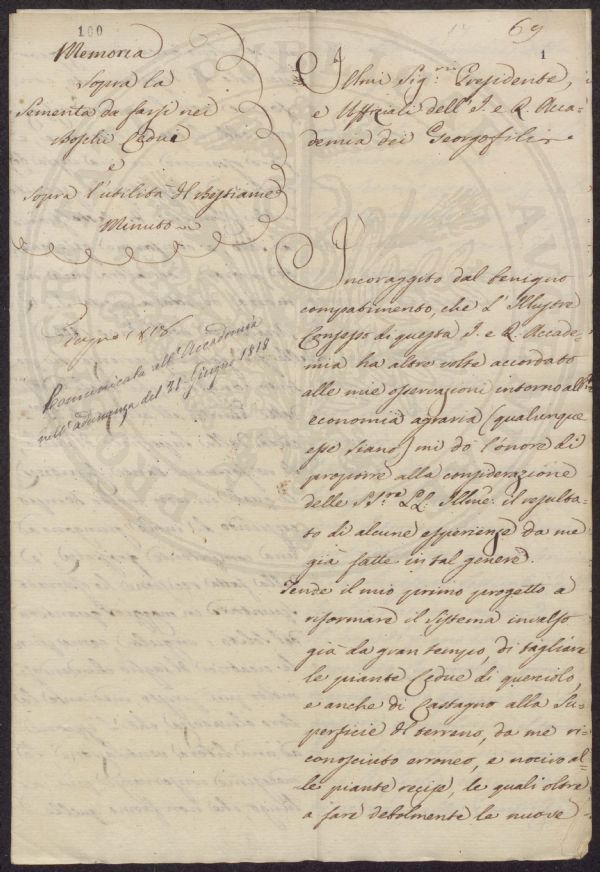 100
69
1
Memoria
Sopra la
Sementa da farsi nei
Boschi Cedui
e
Sopra l'utilità del Bestiame
Minuto
Giugno 1818
Comunicata all'Accademia
nell'adunanza del 21 Giugno 1818
Illmi Sig.ri Presidente,
e Uffiziali dell'I. e R. Acca=
demia dei Georgofili
Incoraggito dal benigno
compatimento, che L'Illustre
Consesso di questa I. e R. Accade=
mia ha altre volte accordato
alle mie osservazioni intorno all'
economia agraria (qualunque
esse siano) mi dò l'onore di
proporre alla considerazione
delle SS.rie LL. Illme: il resulta=
to di alcune esperienze da me
già fatte in tal genere.
Tende il mio primo progetto a
riformare il sistema invalso
già da gran tempo, di tagliare
le piante Cedue di querciolo,
e anche di Castagno alla Su=
perficie del terreno, da me ri=
conosciuto erroneo, e nocivo al=
le piante recise, le quali oltre
a fare debolmente le nuove